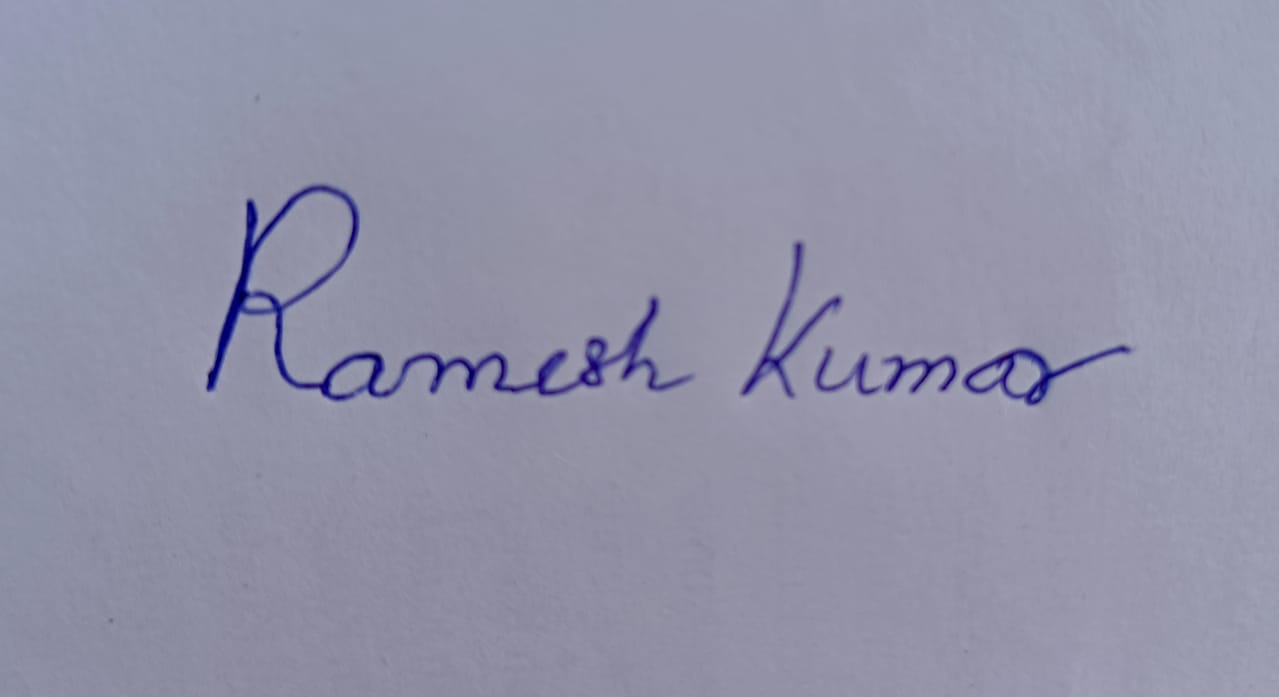 Ramesh Kumar